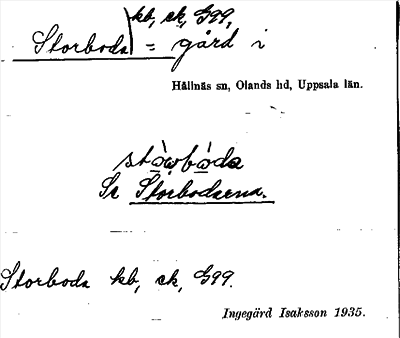 kb, ck, G99,
Storboda = gård i
Hållnäs sn, Olands hd, Uppsala län.
stòwbòda
Se Storbodarna.
Storboda kb, ck, G99.
Ingegärd Isaksson 1935.